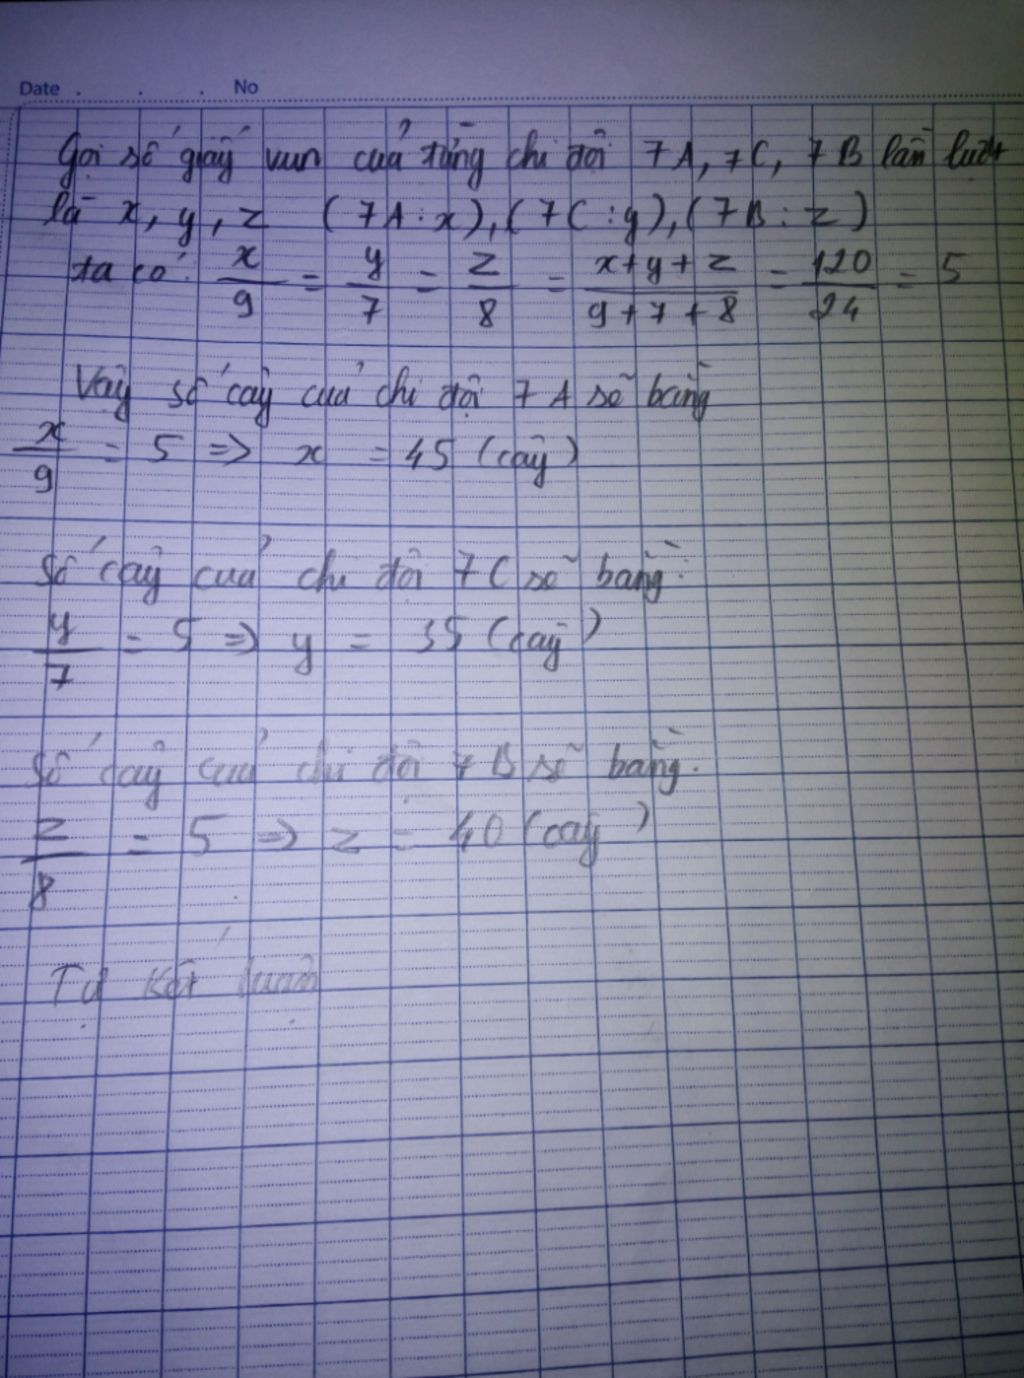 Date . . . No
Gọi số giấy vụn của từng chi đội 7A, 7C, 7B lần lượt
là x, y, z (7A : x), (7C : y), (7B : z)
ta có: x/9 = y/7 = z/8 = x+y+z/9+7+8 = 120/24 = 5
Vậy số cây của chi đội 7A sẽ bằng
x/9 = 5 => x = 45 (cây)
Số cây của chi đội 7C sẽ bằng:
y/7 = 5 => y = 35 (cây)
Số cây của chi đội 7B sẽ bằng.
z/8 = 5 => z = 40 (cây)
Tự kết luận